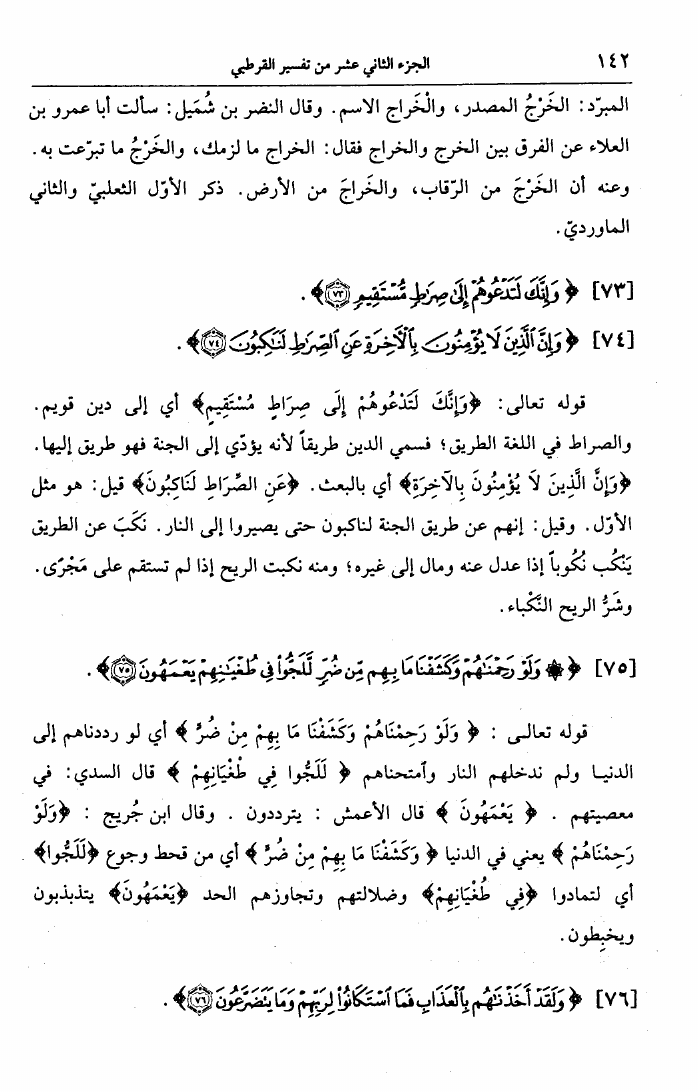 ١٤٢ الجزء الثاني عشر من تفسير القرطبي
المبرّد: الخَرْجُ المصدر، والْخَراج الاسم. وقال النضر بن شُمَيل: سألت أبا عمرو بن
العلاء عن الفرق بين الخرج والخراج فقال: الخراج ما لزمك، والخَرْجُ ما تبرّعت به.
وعنه أن الخَرْجَ من الرّقاب، والخَراجَ من الأرض. ذكر الأوّل الثعلبيّ والثاني
الماورديّ.
[٧٣] ﴿ وَإِنَّكَ لَتَدْعُوهُمْ إِلَىٰ صِرَٰطٍ مُّسْتَقِيمٍ ٧٣﴾ .
[٧٤] ﴿ وَإِنَّ ٱلَّذِينَ لَا يُؤْمِنُونَ بِٱلْأَخِرَةِ عَنِ ٱلصِّرَٰطِ لَنَٰكِبُونَ ٧٤﴾ .
قوله تعالى: ﴿وَإِنَّكَ لَتَدْعُوهُمْ إِلَى صِرَاطٍ مُسْتَقِيمٍ﴾ أي إلى دين قويم.
والصراط في اللغة الطريق؛ فسمي الدين طريقاً لأنه يؤدّي إلى الجنة فهو طريق إليها.
﴿وَإِنَّ الَّذِينَ لَا يُؤْمِنُونَ بِالآخِرَةِ﴾ أي بالبعث. ﴿عَنِ الصِّرَاطِ لَنَاكِبُونَ﴾ قيل: هو مثل
الأوّل. وقيل: إنهم عن طريق الجنة لناكبون حتى يصيروا إلى النار. نَكَبَ عن الطريق
يَنْكُب نُكُوباً إذا عدل عنه ومال إلى غيره؛ ومنه نكبت الريح إذا لم تستقم على مَجْرًى.
وشَرُّ الريح النَّكْباء.
[٧٥] ﴿ ۞ وَلَوْ رَحِمْنَٰهُمْ وَكَشَفْنَا مَا بِهِم مِّن ضُرٍّ لَّلَجُّوا۟ فِى طُغْيَٰنِهِمْ يَعْمَهُونَ ٧٥﴾ .
قوله تعالى : ﴿ وَلَوْ رَحِمْنَاهُمْ وَكَشَفْنَا مَا بِهِمْ مِنْ ضُرٍّ ﴾ أي لو رددناهم إلى
الدنيا ولم ندخلهم النار وٱمتحناهم ﴿ لَلَجُّوا فِي طُغْيَانِهِمْ ﴾ قال السدي: في
معصيتهم . ﴿ يَعْمَهُونَ ﴾ قال الأعمش : يترددون . وقال ابن جُريج : ﴿وَلَوْ
رَحِمْنَاهُمْ ﴾ يعني في الدنيا ﴿ وَكَشَفْنَا مَا بِهِمْ مِنْ ضُرٍّ ﴾ أي من قحط وجوع ﴿لَلَجُّوا﴾
أي لتمادوا ﴿فِي طُغْيَانِهِمْ﴾ وضلالتهم وتجاوزهم الحد ﴿يَعْمَهُونَ﴾ يتذبذبون
ويخبِطون.
[٧٦] ﴿ وَلَقَدْ أَخَذْنَٰهُم بِٱلْعَذَابِ فَمَا ٱسْتَكَانُوا۟ لِرَبِّهِمْ وَمَا يَتَضَرَّعُونَ ٧٦﴾ .